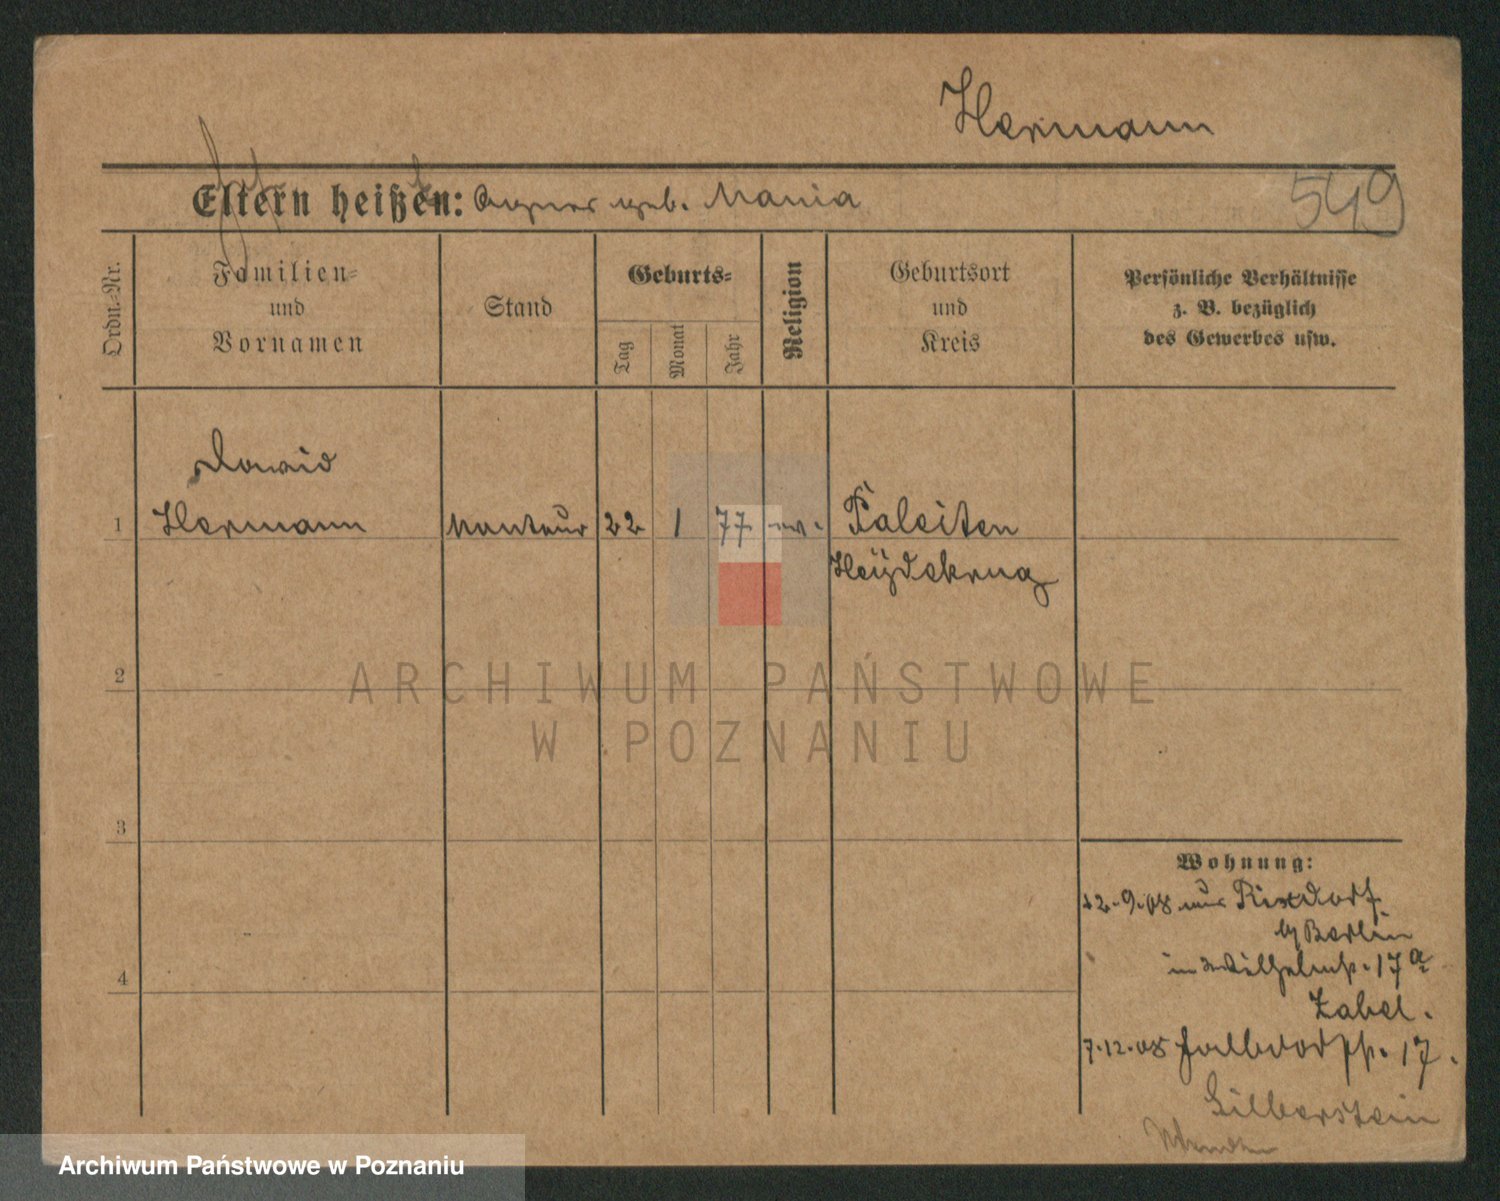 Hermann
Eltern heißen: Agnes geb. Mania
549
Ordn.-Nr.
Familien-
und
Vornamen
Stand
Geburts-
Tag
Monat
Jahr
Religion
Geburtsort
und
Kreis
Persönliche Verhältnisse
z. B. bezüglich
des Gewerbes usw.
Dawid
1 Hermann Monteur 22 1 77 ev. Paleiten
Heÿdekrug
2
ARCHIWUM PAŃSTWOWE
W POZNANIU
3
Wohnung:
12.9.08 aus Rixdorf
b/Berlin
in Wilhelmstr. 17a
4
Zabel.
7.12.08 17.
Silberstein
Archiwum Państwowe w Poznaniu